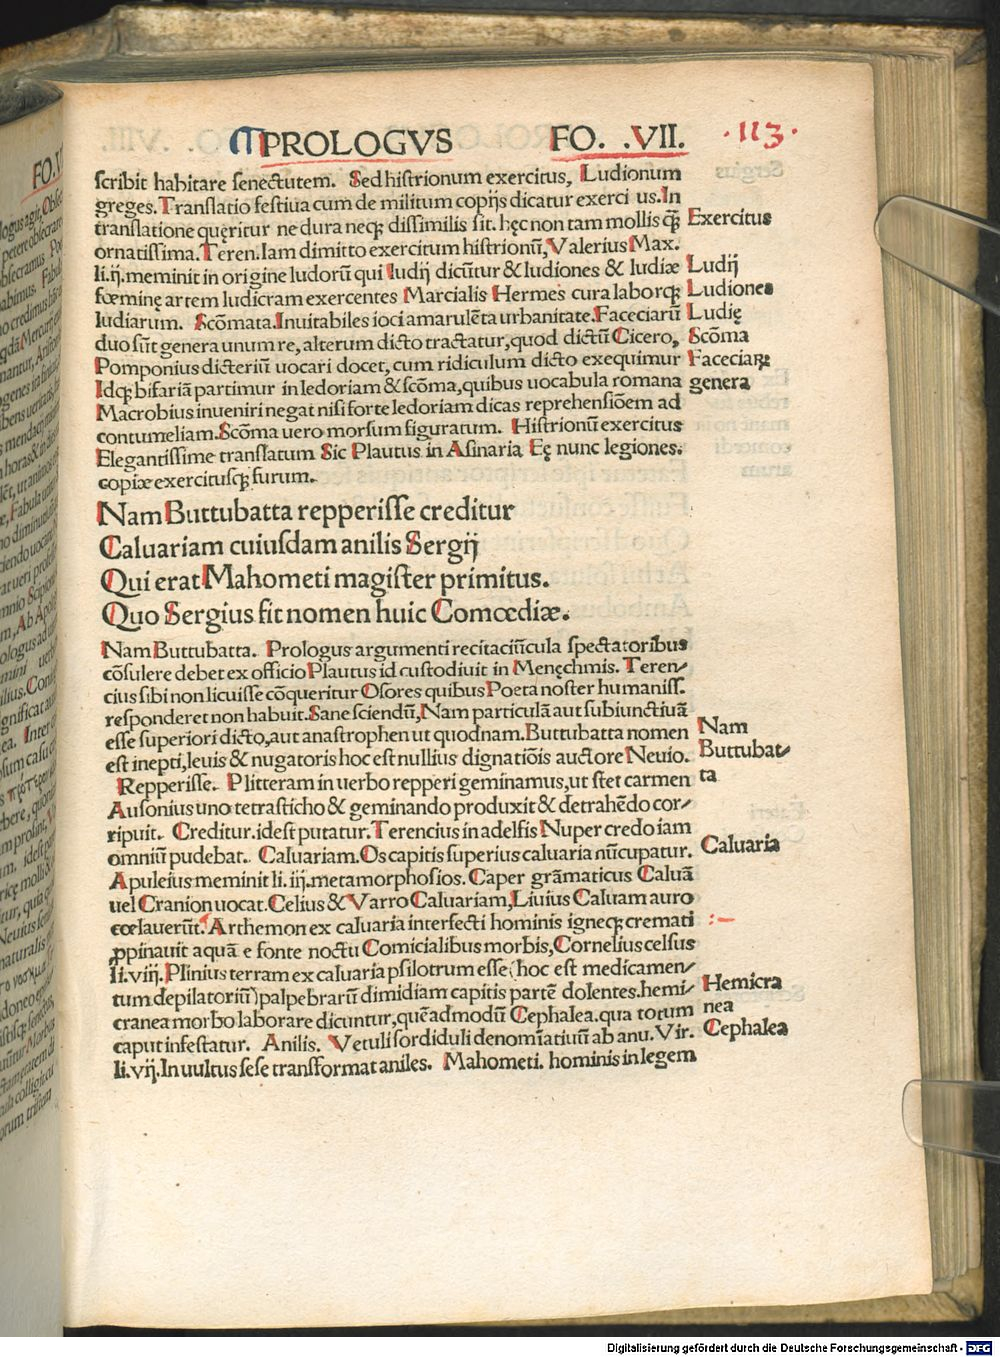 PROLOGVS FO. .VII. ·113·
scribit habitare senectutem. Sed histrionum exercitus, Ludionum
greges. Translatio festiua cum de militum copijs dicatur exerci us. In
translatione quęritur ne dura neqꝫ dissimilis sit. hęc non tam mollis q̃ꝫ
ornatissima. Teren. Iam dimitto exercitum histrionũ, Valerius Max.
li. ij. meminit in origine ludorũ qui ludij dicũtur & ludiones & ludiæ
fœminę artem ludicram exercentes Marcialis Hermes cura laborqꝫ
ludiarum. Scõmata. Inuitabiles ioci amarulẽta urbanitate. Faceciarũ
duo sũt genera unum re, alterum dicto tractatur, quod dictũ Cicero,
Pomponius dicteriũ uocari docet, cum ridiculum dicto exequimur
Idqꝫ bifariã partimur in ledoriam & scõma, quibus uocabula romana
Macrobius inueniri negat nisi forte ledoriam dicas reprehensiõem ad
contumeliam. Scõma uero morsum figuratum. Histrionũ exercitus
Elegantissime translatum Sic Plautus in Asinaria Eę nunc legiones.
copiæ exercitusqꝫ furum.
Exercitus
Ludij
Ludiones
Ludię
Scõma
Faceciaꝝ
genera
Nam Buttubatta repperisse creditur
Caluariam cuiusdam anilis Sergij
Qui erat Mahometi magister primitus.
Quo Sergius fit nomen huic Comœdiæ.
Nam Buttubatta. Prologus argumenti recitaciũcula spectatoribus
cõsulere debet ex officio Plautus id custodiuit in Menęchmis. Teren-
cius sibi non licuisse cõqueritur Osores quibus Poeta noster humaniss.
responderet non habuit. Sane sciendũ, Nam particulã aut subiunctiuã
esse superiori dicto, aut anastrophen ut quodnam. Buttubatta nomen
est inepti, leuis & nugatoris hoc est nullius dignatiõis auctore Neuio.
Repperisse. P litteram in uerbo repperi geminamus, ut stet carmen
Ausonius uno tetrasticho & geminando produxit & detrahẽdo cor-
ripuit. Creditur. idest putatur. Terencius in adelfis Nuper credo iam
omniũ pudebat. Caluariam. Os capitis superius caluaria nũcupatur.
Apuleius meminit li. iij. metamorphosios. Caper grãmaticus Caluã
uel Cranion uocat. Celius & Varro Caluariam, Liuius Caluam auro
cœlauerũt. Arthemon ex caluaria interfecti hominis igneqꝫ cremati
ꝓpinauit aquã e fonte noctu Comicialibus morbis, Cornelius celsus
li. viij. Plinius terram ex caluaria psilotrum esse (hoc est medicamen-
tum depilatoriũ) palpebrarũ dimidiam capitis partẽ dolentes. hemi-
cranea morbo laborare dicuntur, quẽadmodũ Cephalea. qua totum
caput infestatur. Anilis. Vetuli sordiduli denomĩatiuũ ab anu. Vir.
li. vij. In uultus sese transformat aniles. Mahometi. hominis in legem
Nam
Buttubat-
ta
Caluaria
Hemicra
nea
Cephalea
Digitalisierung gefördert durch die Deutsche Forschungsgemeinschaft - DFG